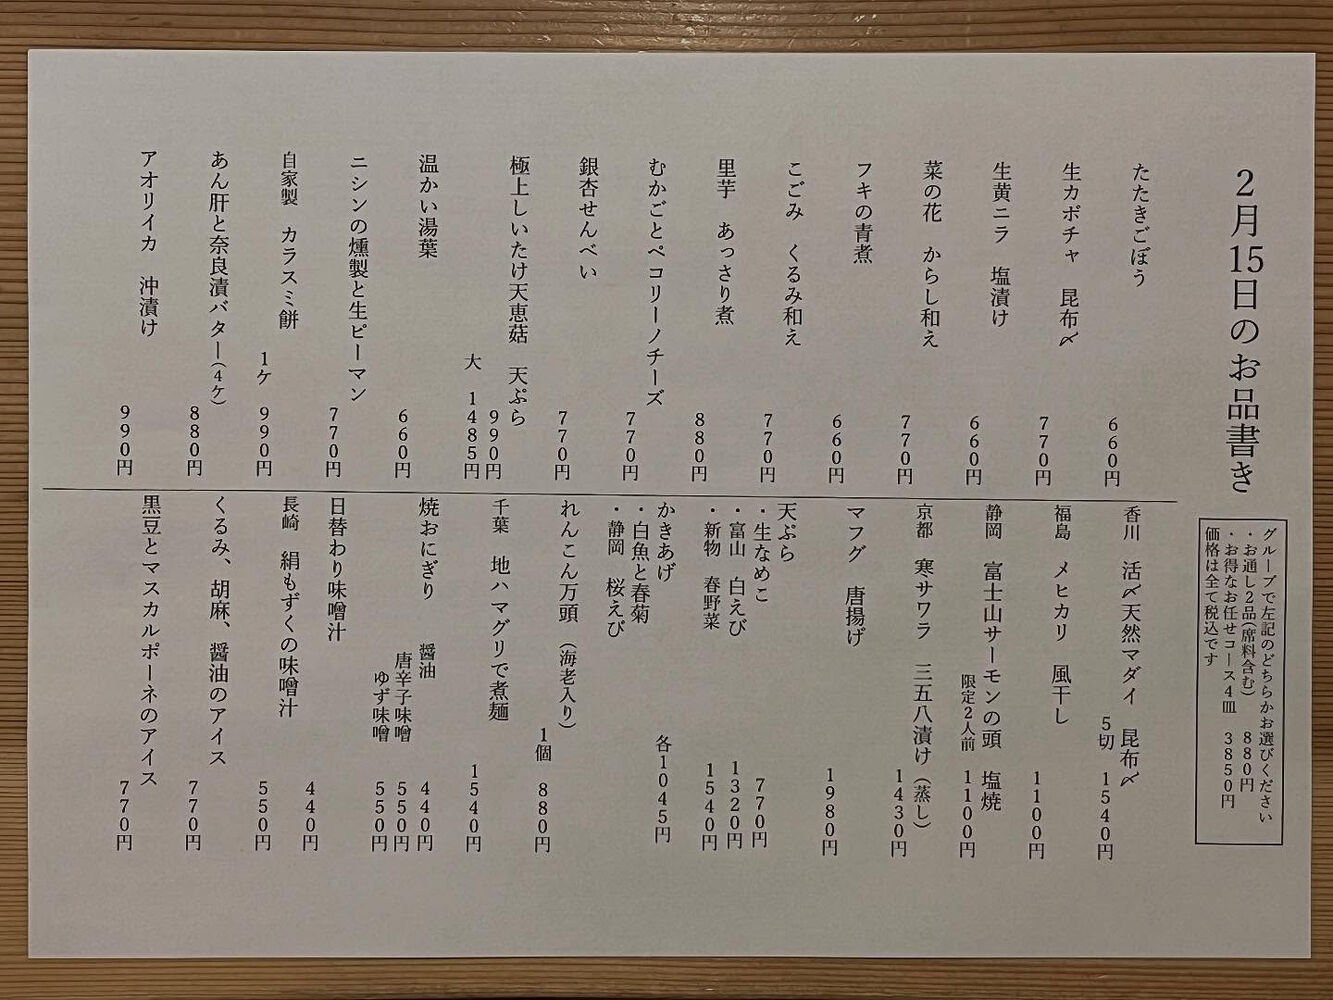 2月15日のお品書き
グループで左記のどちらかお選びください
・お通し2品(席料含む) 880円
・お得なお任せコース4皿 3850円
価格は全て税込です
たたきごぼう 660円
生カボチャ 昆布〆 770円
生黄ニラ 塩漬け 660円
菜の花 からし和え 770円
フキの青煮 660円
こごみ くるみ和え 770円
里芋 あっさり煮 880円
むかごとペコリーノチーズ 770円
銀杏せんべい 770円
極上しいたけ天恵菇 天ぷら 990円
大 1485円
温かい湯葉 660円
ニシンの燻製と生ピーマン 770円
自家製 カラスミ餅
1ケ 990円
あん肝と奈良漬バター(4ケ) 880円
アオリイカ 沖漬け 990円
香川 活〆天然マダイ 昆布〆
5切 1540円
福島 メヒカリ 風干し 1100円
静岡 富士山サーモンの頭 塩焼
限定2人前 1100円
京都 寒サワラ 三五八漬け(蒸し) 1430円
マフグ 唐揚げ 1980円
天ぷら
・生なめこ 770円
・富山 白えび 1320円
・新物 春野菜 1540円
かきあげ 各1045円
・白魚と春菊
・静岡 桜えび
れんこん万頭(海老入り)
1個 880円
千葉 地ハマグリで煮麺 1540円
焼おにぎり 醤油 440円
唐辛子味噌 550円
ゆず味噌 550円
日替わり味噌汁 440円
長崎 絹もずくの味噌汁 550円
くるみ、胡麻、醤油のアイス 770円
黒豆とマスカルポーネのアイス 770円